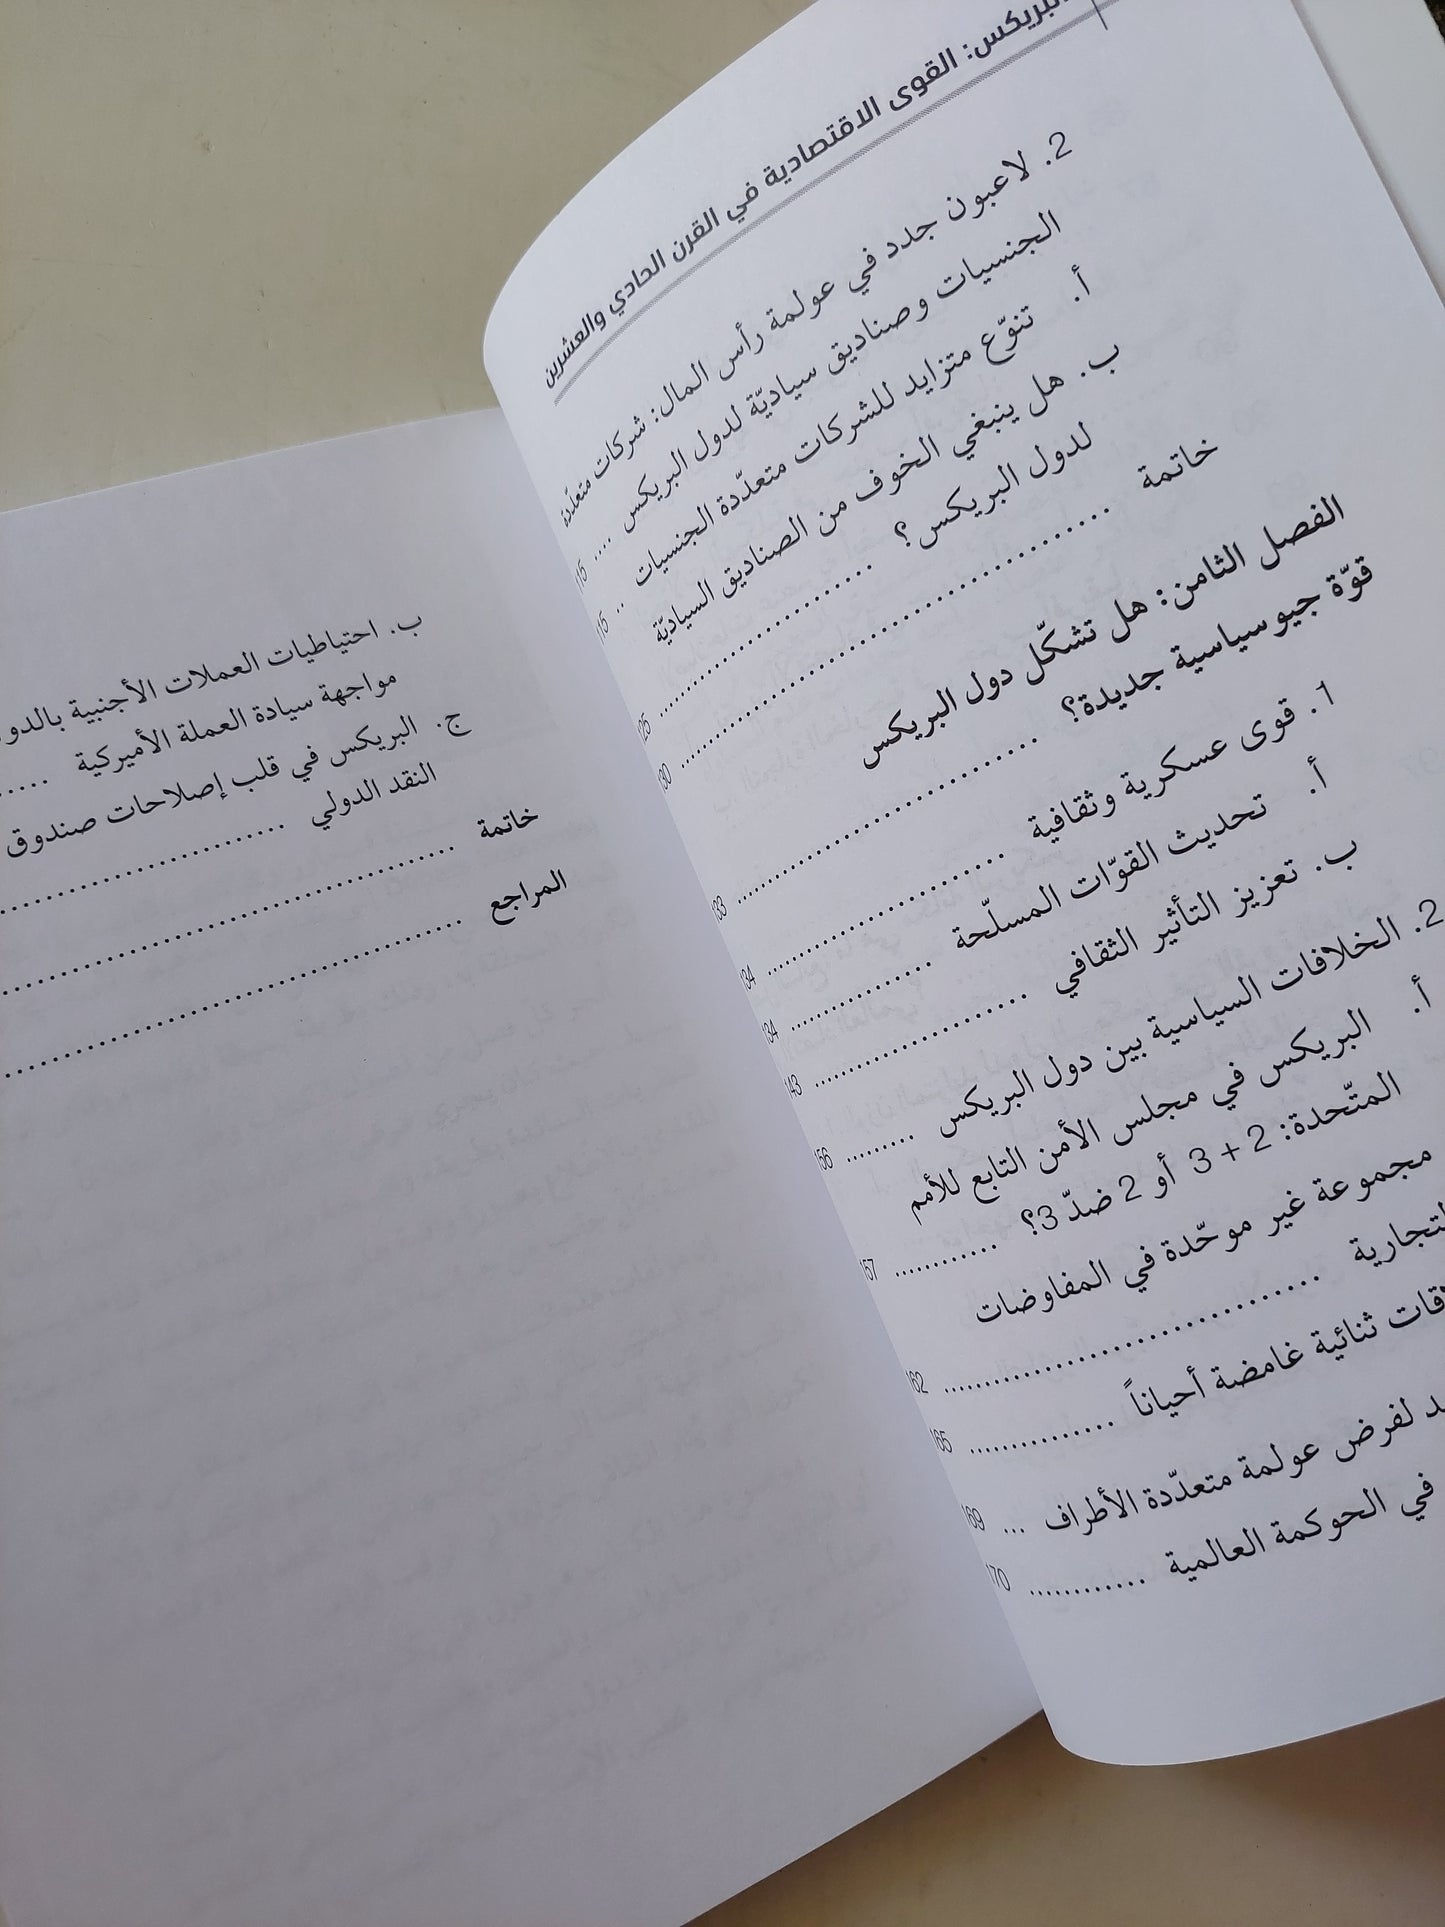 البريكس: القوى الاقتصادية في القرن الحادي والعشرين
2. لاعبون جدد في عولمة رأس المال: شركات متعدّدة
الجنسيات وصناديق سياديّة لدول البريكس ..... 115
أ. تنوّع متزايد للشركات متعدّدة الجنسيات .. 115
ب. هل ينبغي الخوف من الصناديق السياديّة
لدول البريكس؟ ..................... 125
خاتمة ........................................ 130
الفصل الثامن: هل تشكّل دول البريكس
قوّة جيوسياسية جديدة؟ .............................. 133
1. قوى عسكرية وثقافية ........................ 134
أ. تحديث القوّات المسلّحة .............. 134
ب. تعزيز التأثير الثقافي ..................... 143
2. الخلافات السياسية بين دول البريكس ........ 156
أ. البريكس في مجلس الأمن التابع للأمم
المتّحدة: 2 + 3 أو 2 ضدّ 3؟ ............ 157
مجموعة غير موحّدة في المفاوضات
التجارية ................................... 162
ثنائية غامضة أحياناً ............... 165
لفرض عولمة متعدّدة الأطراف ... 169
في الحوكمة العالمية ............. 170
ب. احتياطيات العملات الأجنبية
مواجهة سيادة العملة الأميركية .....
ج. البريكس في قلب إصلاحات صندوق
النقد الدولي ..............................
خاتمة ........................................
المراجع ........................................